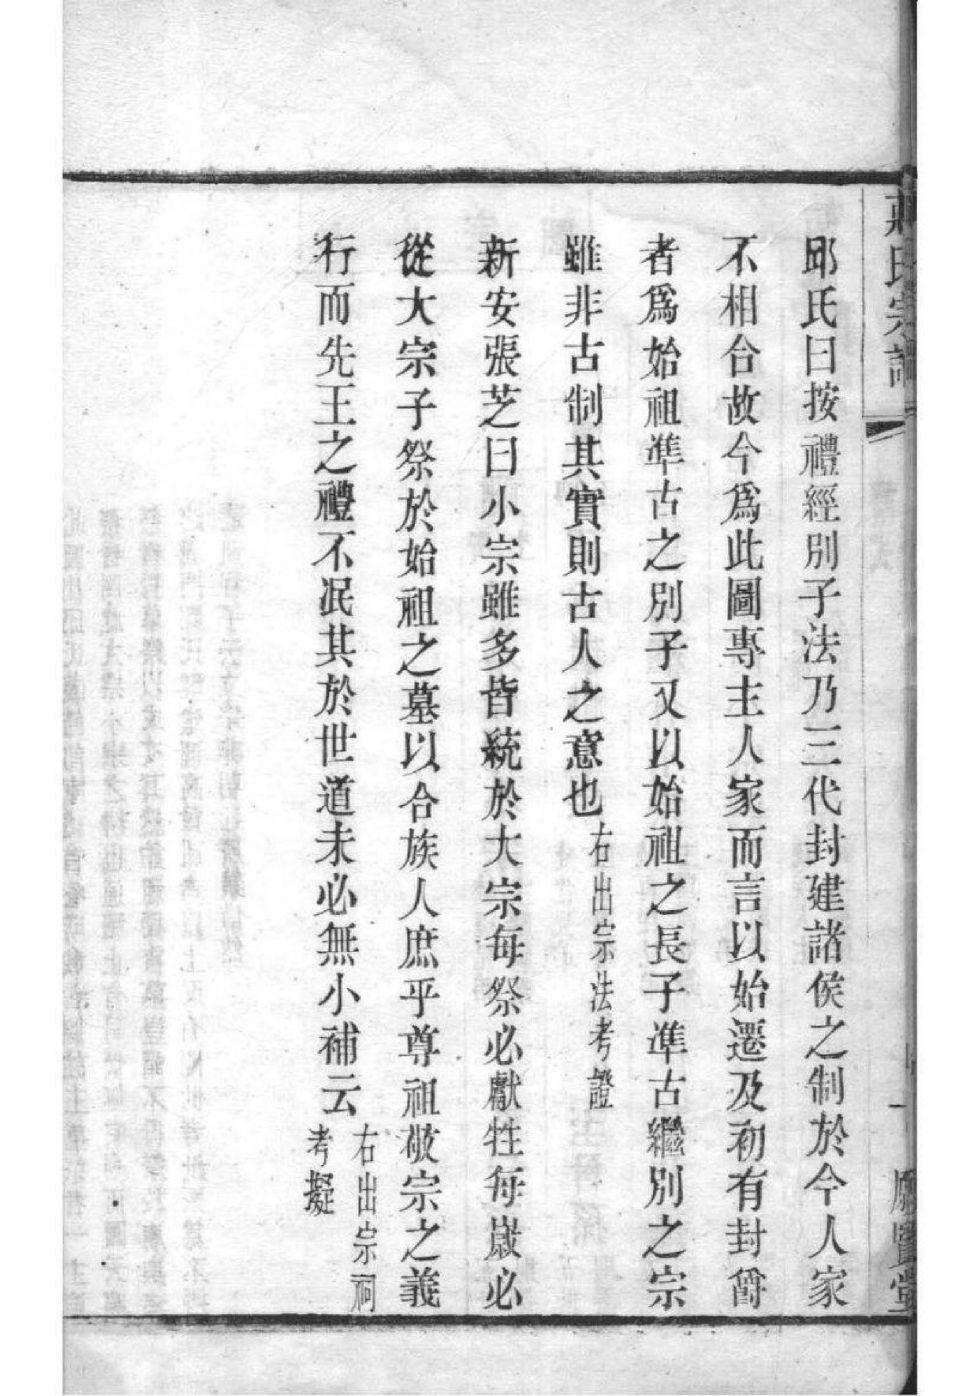 邱氏曰按禮經別子法乃三代封建諸侯之制於今人家
不相合故今爲此圖專主人家而言以始遷及初有封爵
者爲始祖準古之別子又以始祖之長子準古繼別之宗
雖非古制其實則古人之意也右出宗法考證
新安張芝曰小宗雖多皆統於大宗每祭必獻牲每嵗必
從大宗子祭於始祖之墓以合族人庶乎尊祖敬宗之義
行而先王之禮不泯其於世道未必無小補云右出宗祠
考擬